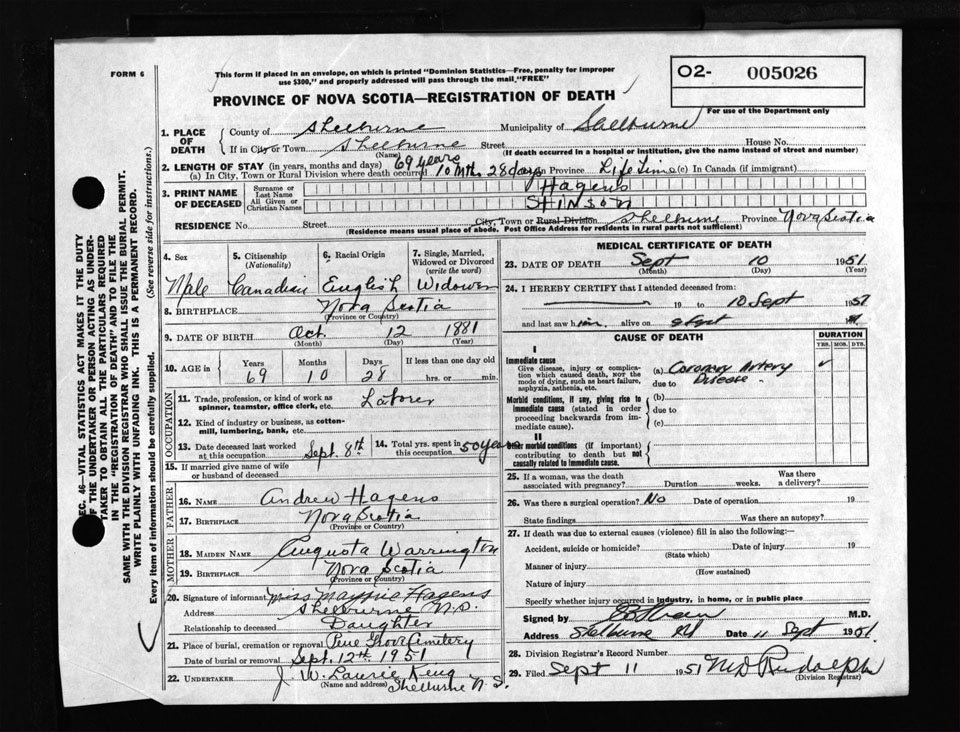 FORM 6
This form if placed in an envelope, on which is printed "Dominion Statistics—Free, penalty for improper
use $300," and properly addressed will pass through the mail, "FREE"
O2- 005026
For use of the Department only
PROVINCE OF NOVA SCOTIA—REGISTRATION OF DEATH
1. PLACE OF DEATH
County of Shelburne Municipality of Shelburne
If in City or Town Shelburne Street House No.
(Name) (If death occurred in a hospital or institution, give the name instead of street and number)
2. LENGTH OF STAY (in years, months and days) 69 years
(a) In City, Town or Rural Division where death occurred 10 Mth. 28 days in Province Life Time (c) In Canada (if immigrant)
3. PRINT NAME OF DECEASED
Surname or Last Name Hagens
All Given or Christian Names STINSON
RESIDENCE No. Street City, Town or Rural Division Shelburne Province Nova Scotia
(Residence means usual place of abode. Post Office Address for residents in rural parts not sufficient)
4. Sex Male
5. Citizenship (Nationality) Canadian
6. Racial Origin English
7. Single, Married, Widowed or Divorced (write the word) Widower
8. BIRTHPLACE Nova Scotia
(Province or Country)
9. DATE OF BIRTH Oct. 12 1881
(Month) (Day) (Year)
10. AGE in Years 69 Months 10 Days 28 If less than one day old hrs. or min.
OCCUPATION
11. Trade, profession, or kind of work as spinner, teamster, office clerk, etc. Laborer
12. Kind of industry or business, as cotton-mill, lumbering, bank, etc.
13. Date deceased last worked at this occupation Sept. 8th
14. Total yrs. spent in this occupation 50 years
15. If married give name of wife or husband of deceased
FATHER
16. NAME Andrew Hagens
17. BIRTHPLACE Nova Scotia
(Province or Country)
MOTHER
18. MAIDEN NAME Augusta Warrington
19. BIRTHPLACE Nova Scotia
(Province or Country)
20. Signature of informant Miss Maggie Hagens
Address Shelburne N.S.
Relationship to deceased Daughter
21. Place of burial, cremation or removal Pine Grove Cemetery
Date of burial or removal Sept. 12th 1951
22. UNDERTAKER J. W. Laurie King
(Name and address) Shelburne N.S.
MEDICAL CERTIFICATE OF DEATH
23. DATE OF DEATH Sept 10 1951
(Month) (Day) (Year)
24. I HEREBY CERTIFY that I attended deceased from:
19 to 10 Sept 1951
and last saw him alive on 9 Sept
CAUSE OF DEATH
DURATION
YRS. MOS. DYS.
I
Immediate cause
Give disease, injury or complication which caused death, nor the mode of dying, such as heart failure, asphyxia, asthenia, etc.
(a) Coronary Artery
due to Disease
Morbid conditions, if any, giving rise to immediate cause (stated in order proceeding backwards from immediate cause).
(b)
due to
(c)
II
Other morbid conditions (if important) contributing to death but not causally related to immediate cause.
25. If a woman, was the death associated with pregnancy? Duration weeks. Was there a delivery?
26. Was there a surgical operation? No Date of operation 19
State findings Was there an autopsy?
27. If death was due to external causes (violence) fill in also the following:—
Accident, suicide or homicide? Date of injury 19
(State which)
Manner of injury
(How sustained)
Nature of injury
Specify whether injury occurred in industry, in home, or in public place
Signed by M.D.
Address Shelburne Date 11 Sept 1951
28. Division Registrar's Record Number
29. Filed Sept 11 1951 Rudolph
(Division Registrar)
SEC. 46—VITAL STATISTICS ACT MAKES IT THE DUTY
OF THE UNDERTAKER OR PERSON ACTING AS UNDER-
TAKER TO OBTAIN ALL THE PARTICULARS REQUIRED
IN THE "REGISTRATION OF DEATH" AND TO FILE THE
SAME WITH THE DIVISION REGISTRAR WHO SHALL ISSUE THE BURIAL PERMIT.
WRITE PLAINLY WITH UNFADING INK. THIS IS A PERMANENT RECORD.
Every item of information should be carefully supplied. (See reverse side for instructions.)